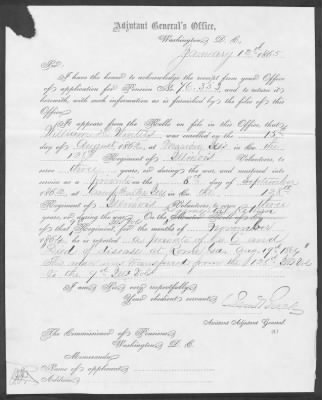 Adjutant General's Office,
Washington, D. C.
January 12th 1865
Sir:
I have the honor to acknowledge the receipt from your Office
of application for Pension No. 76.333, and to return it
herewith, with such information as is furnished by the files of this
Office.
It appears from the Rolls on file in this Office, that
William Winters was enrolled on the 15th
day of August 1862, at Marion Ills in the
128th Regiment of Illinois Volunteers, to
serve three years, or during the war, and mustered into
service as a Private on the
day of September
1862, at Ills in the 128th
Regiment of Illinois Volunteers, to serve three
years, or during the War. On the
of that Regiment, for the months of November
1864, he is reported
Died of disease at Rome Ga. Aug 1864
transferred from the 128th Ills
to the 9th Ills Vols
I am Sir, very respectfully,
Your obedient servant,
Assistant Adjutant General.
The Commissioner of Pensions
Washington, D. C.
Memoranda:
Name of applicant
Address